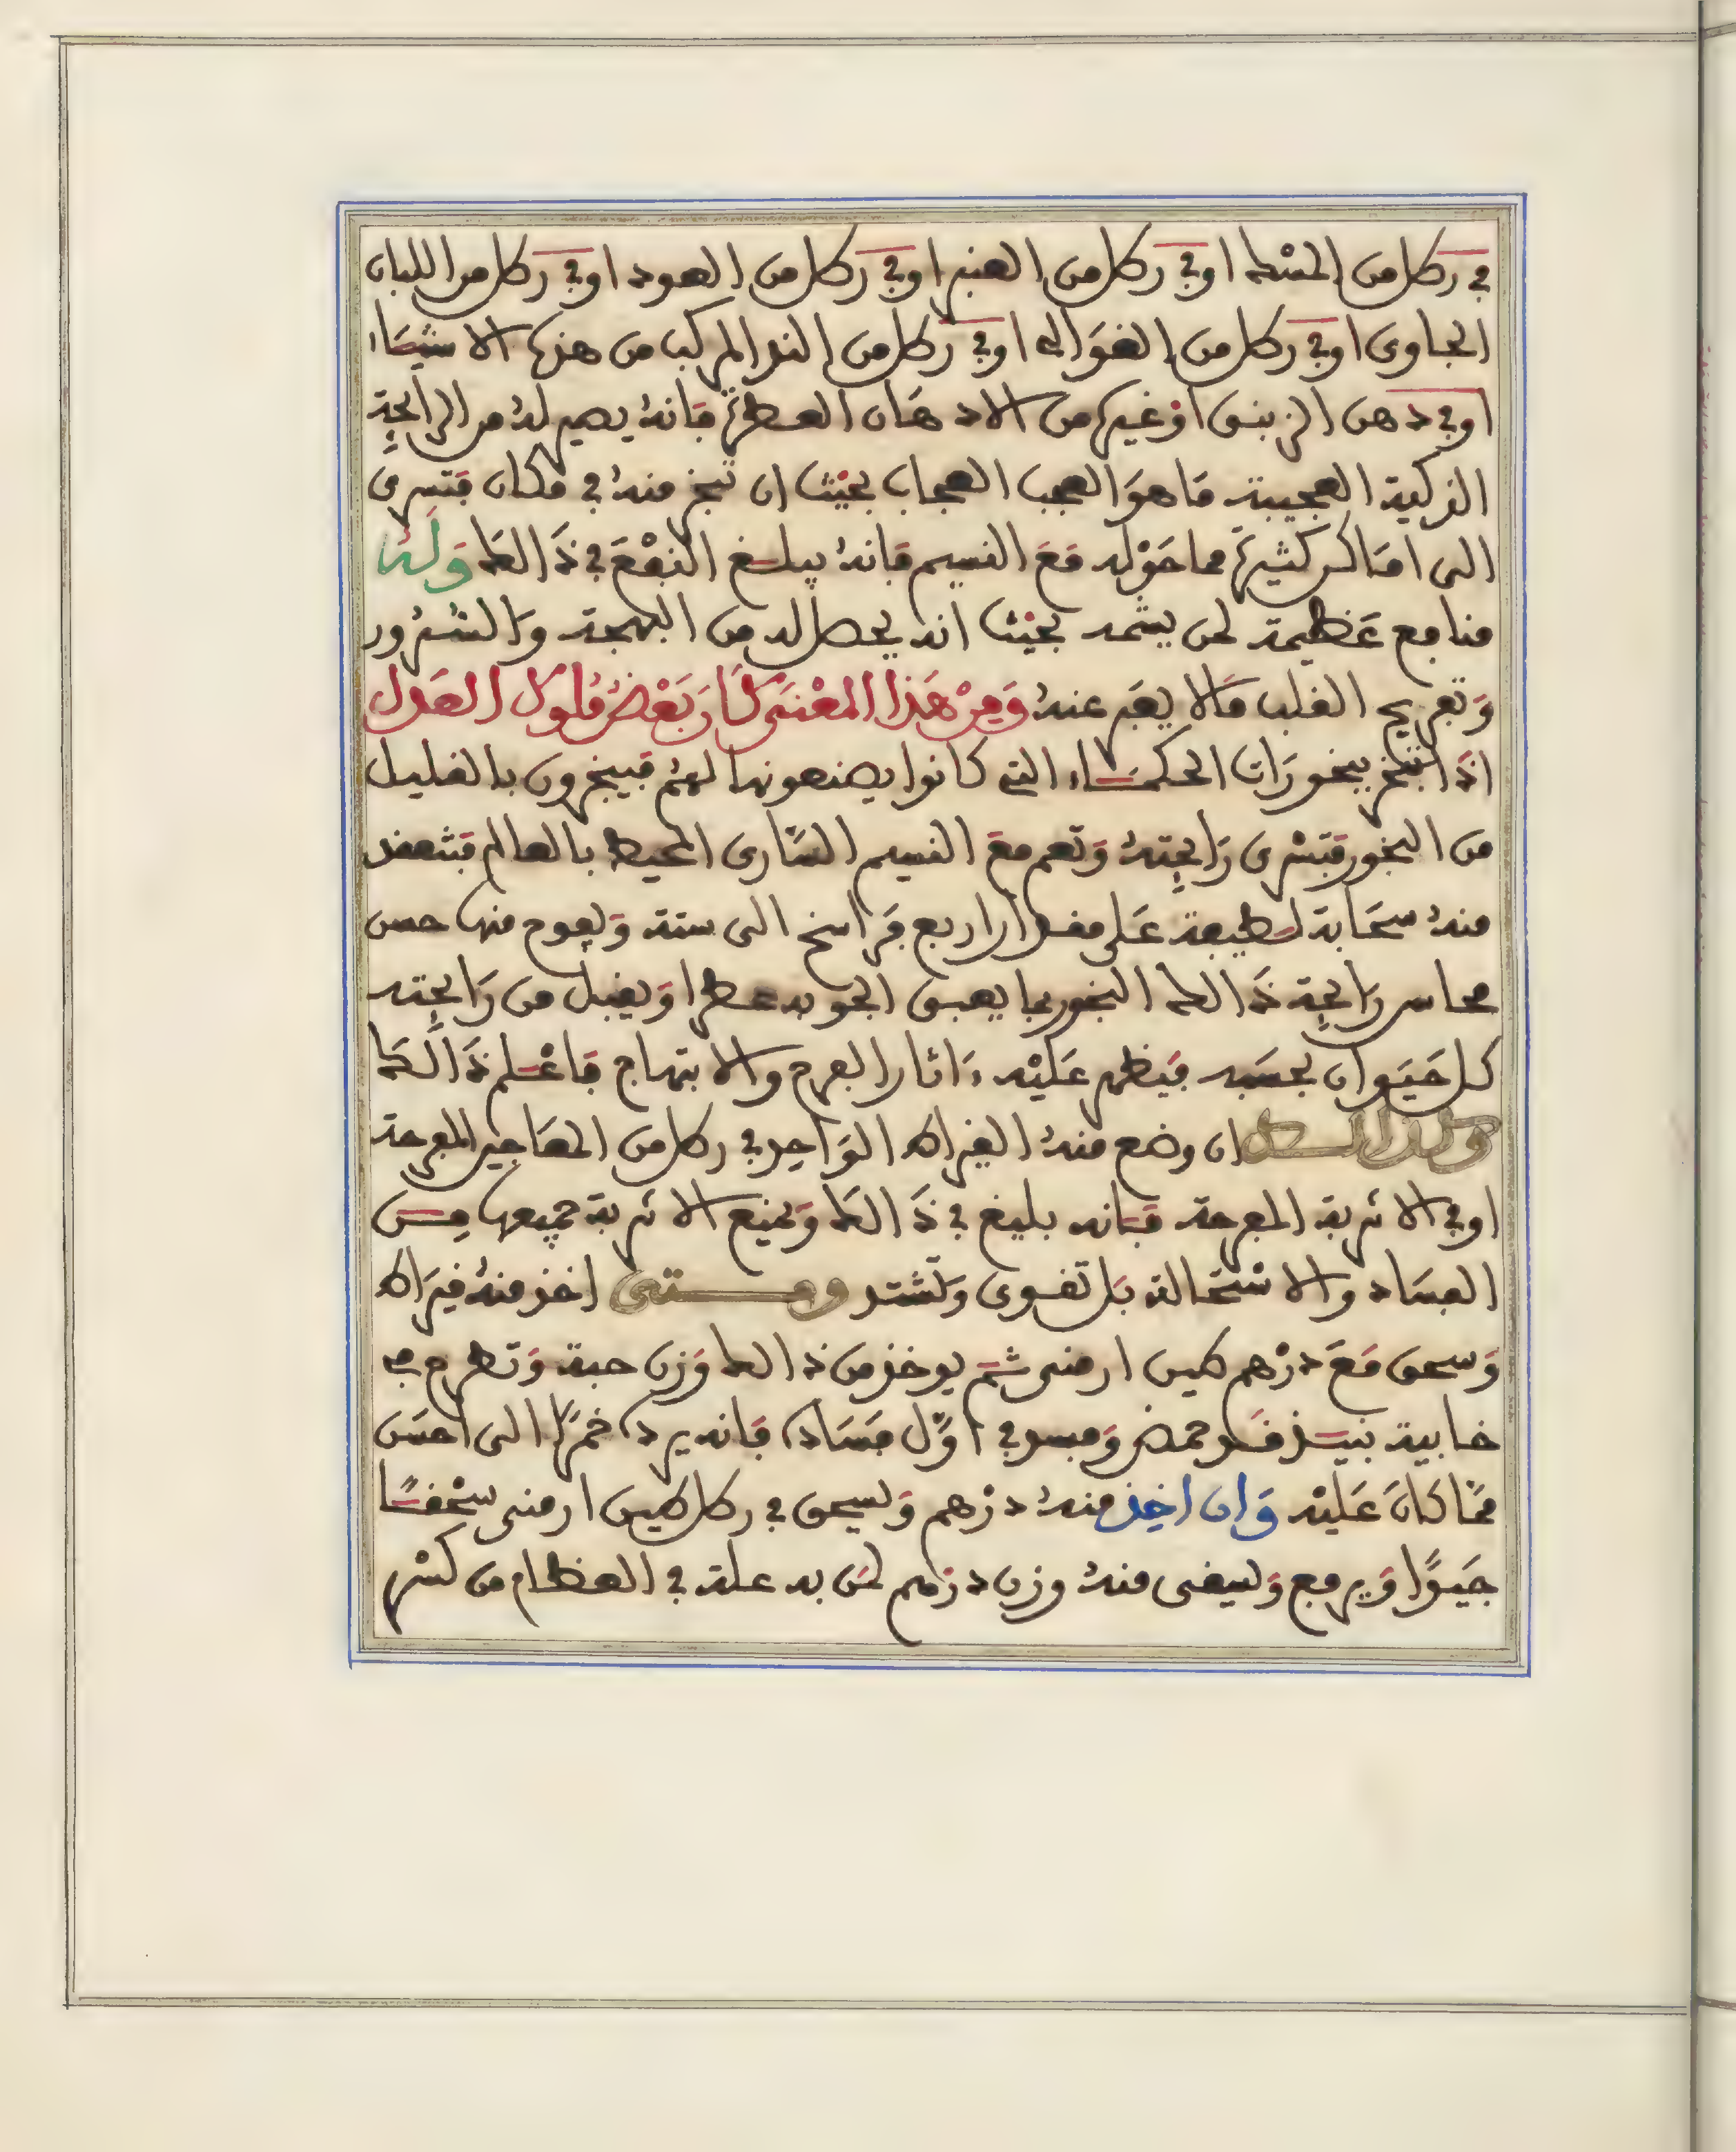 في رطل من المسك او في رطل من العنبر او في رطل من العود او في رطل من اللبان
الجاوى او في رطل من الغوالي او في رطل من الند المركب من هذه الاشياء
او في دهن الزنبق او غيره من الادهان العطرة فانه يصير له من الرائحة
الذكية العجيبة ما هو العجب العجاب بحيث ان تبخر منه في مكان فتسرى
الى اماكن كثيرة مما حوله مع النسيم فانه يبلغ النفع في ذالك وله
منافع عظيمة لمن يشمه بحيث انه يحصل له من البهجة والسرور
وتفريح القلب ما لا يعبر عنه ومن هذا المعنى كان بعض ملوك العدل
اذا تبخر ببخورات الحكماء التي كانوا يصنعونها لهم فيبخرون بالقليل
من البخور فتسرى رائحته وتعم مع النسيم السارى المحيط بالعالم فتنعقد
منه سحابة لطيفة على مقدار اربع فراسخ الى ستة ويفوح منها حسن
محاسن رائحة ذالك البخور بما يعبق الجو به عطرا ويقبل من رائحته
كل حيوان بحسبه فيظهر عليه ءاثار الفرح والابتهاج فاعلم ذالك
وكذالك ان وضع منه القيراط الواحد في رطل من المعاجين المفرحة
او في الاشربة المفرحة فانه بليغ في ذالك ويمنع الاشربة جميعها من
الفساد والاستحالة بل تقوى وتشتد ومتى اخذ منه قيراط
وسحق مع درهم طين ارمنى ثم يوخذ من ذالك وزن حبة وتطرح في
خابية نبيذ قد حمض وفسد في اول فساده فانه يرده خمرا الى احسن
مما كان عليه وان اخذ منه درهم ويسحق في رطل طين ارمنى سحقا
جيدا ويرفع ويسقى منه وزن درهم لمن به علة في العظام من كسر